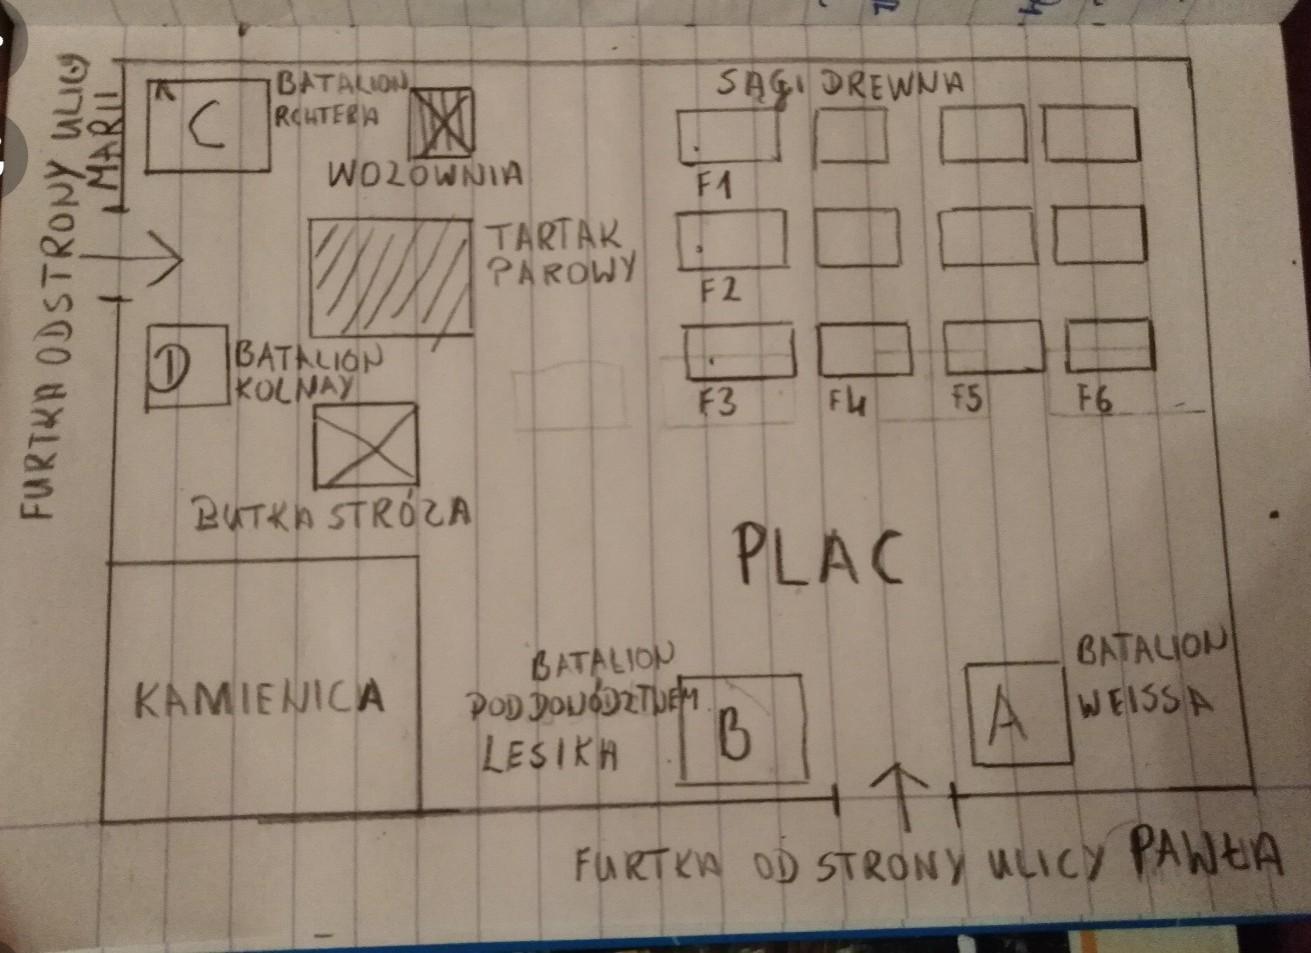 FURTKA OD STRONY ULICY
MARII
C
BATALION
RCHTERA
WOZOWNIA
SĄGI DREWNA
F1
F2
F3
F4
F5
F6
TARTAK
PAROWY
D
BATALION
KOLNAY
BUTKA STRÓZA
PLAC
KAMIENICA
BATALION
POD DOWÓDZTWEM
LESIKA
B
A
BATALION
WEISSA
FURTKA OD STRONY ULICY PAWŁA